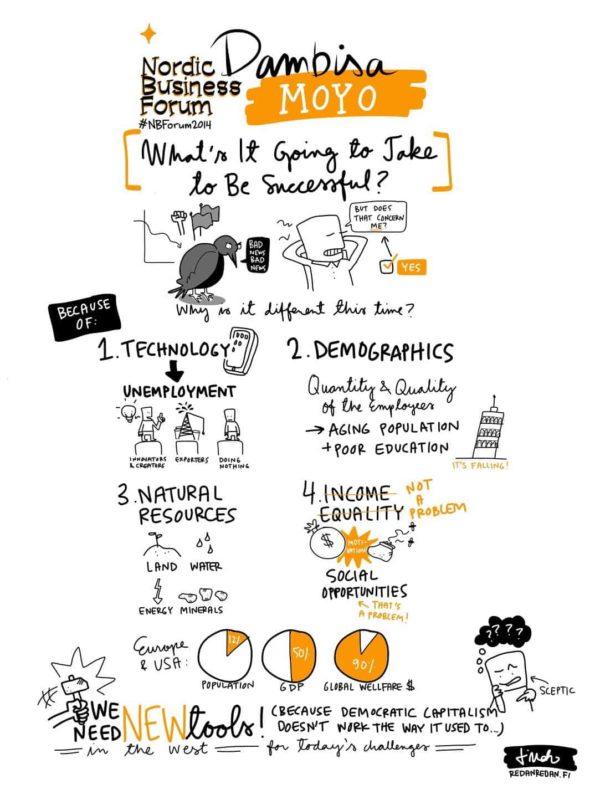 Nordic
Business
Forum
#NBForum2014
Dambisa
MOYO
What's It Going to Take
to Be Successful?
BAD
NEWS
BAD
NEWS
BUT DOES
THAT CONCERN
ME?
YES
Why is it different this time?
BECAUSE
OF:
1. TECHNOLOGY
UNEMPLOYMENT
INNOVATORS
& CREATORS
EXPORTERS
DOING
NOTHING
2. DEMOGRAPHICS
Quantity & Quality
of the Employees
→ AGING POPULATION
+ POOR EDUCATION
IT'S FALLING!
3. NATURAL
RESOURCES
LAND WATER
ENERGY MINERALS
4. INCOME
EQUALITY
NOT
A
PROBLEM
$
MOTI-
VATION
SOCIAL
OPPORTUNITIES
THAT'S
A PROBLEM!
Europe
& USA:
12%
POPULATION
50%
GDP
90%
GLOBAL WELLFARE $
????
SCEPTIC
WE
NEED NEW tools!
(BECAUSE DEMOCRATIC CAPITALISM
DOESN'T WORK THE WAY IT USED TO...)
— in the west — for today's challenges —
REDANREDAN.FI